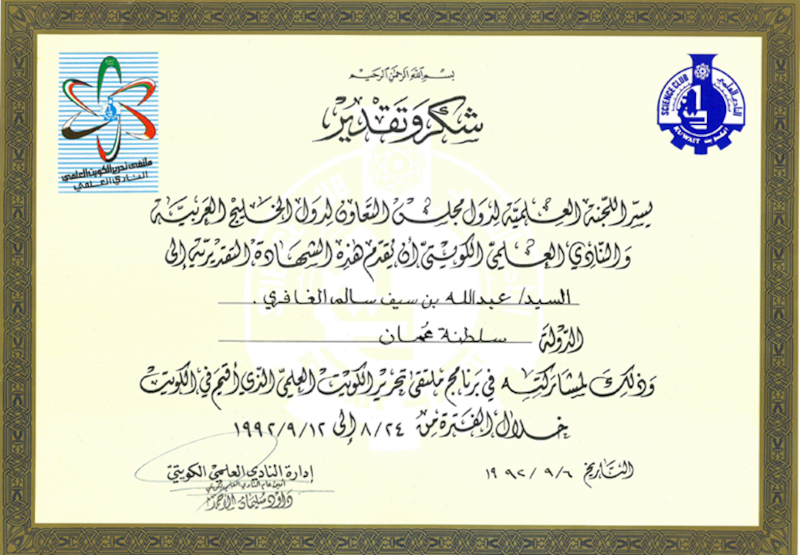 بسم الله الرحمن الرحيم
شكر وتقدير
SCIENCE CLUB
النادي العلمي
KUWAIT الكويت
ملتقى تحرير الكويت العلمي
النادي العلمي
يسر اللجنة العلمية لدول مجلس التعاون لدول الخليج العربية
والنادي العلمي الكويتي أن يقدم هذه الشهادة التقديرية إلى
السيد/ عبدالله بن سيف سالم الغافري .
الدولة سلطنة عُمان
وذلك لمشاركته في برنامج ملتقى تحرير الكويت العلمي الذي أقيم في الكويت
خلال الفترة من ٨/٢٤ إلى ١٩٩٢/٩/١٢
التاريخ ١٩٩٢/٩/٦
إدارة النادي العلمي الكويتي
أمين عام النادي العلمي الكويتي
داوود سليمان الأحمد